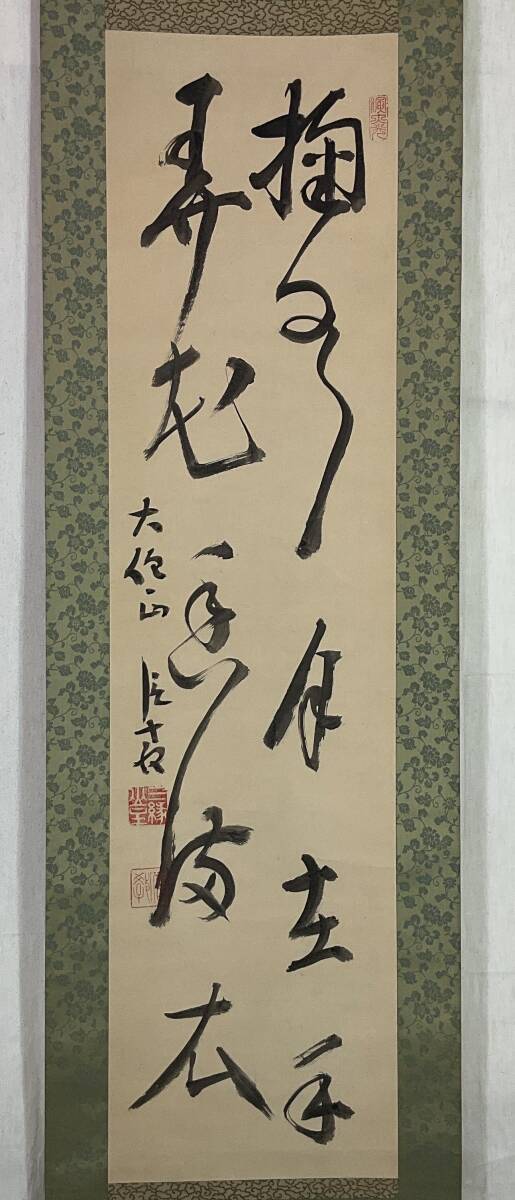 掬水月在手
弄花香満衣
大徳山